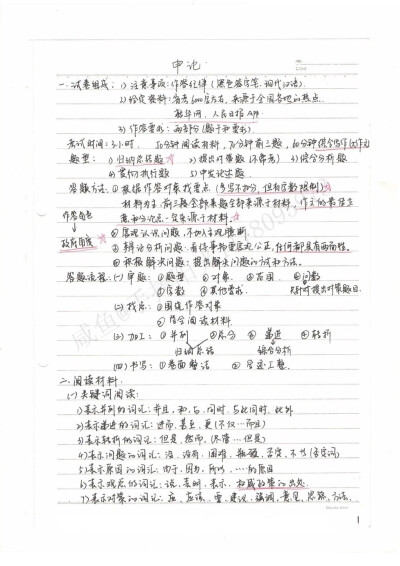 申论
一.试卷组成：1) 注意事项：作答纪律（黑色签字笔、现代汉语）
2) 给定资料：省考6000字左右，来源于全国各地的热点
新华网、人民日报APP
3) 作答要求：两部分（题干和要求）
考试时间：3小时. 50分钟阅读材料，70分钟前三题，60分钟
题型： 1) 归纳总结题 2) 提出对策题 3) 综合分析题
4) 贯彻执行题 5) 申发论述题
答题方法：① 根据作答对象找要点（多写不扣分，但有字数限制）
材料为主，前三题全部来题全部来源于材料，作文的最佳立
意和分论点一定来源于材料。
作答角色
政府角度
② 客观认识问题，不加入主观臆断.
③ 辩证分析问题：看待事物要客观公正，任何都具有两面性.
④ 积极解决问题：提出解决问题的方式和方法.
答题流程：(一) 审题：①题型 ②对象 ③范围 ④问数
⑤字数 ⑥其他要求.
(二) 找点：①围绕作答对象
②结合阅读材料
(三) 加工：①并列 ②总分 ③递进 ④转折
归纳总结 综合分析
(四) 书写：①卷面整洁 ②
二.阅读材料：
(一) 关键词阅读：
1) 表示并列的词汇：并且、和、与、同时、与此同时、此外
2) 表示递进的词汇：进而、甚至、更（不仅…而且）
3) 表示转折的词汇：但是、然而、（尽管…但是）
4) 表示问题的词汇：没、没有、困难、瓶颈、否定、不当（否定词）
5) 表示原因的词汇：由于、因为、所以、…的原因
6) 表示观点的词汇：说、表明、表示、权威政策的出处.
7) 表示对策的词汇：应、应该、要、建议、强调、意见、思路、方法.
1